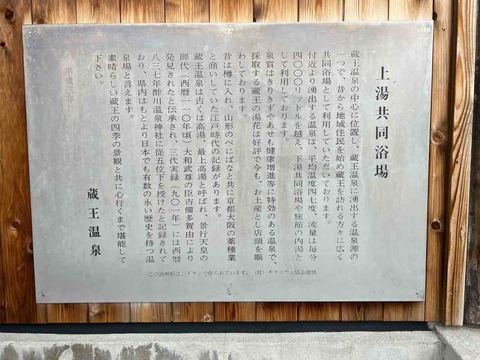 上湯共同浴場
蔵王温泉の中心に位置し、蔵王温泉に湧出する温泉源の
一つで、昔から地域住民を始め蔵王を訪れる方々に広く
共同浴場として利用していただいております。
付近より湧出する温泉は、平均温度四七度、流量は毎分
四〇〇〇リットルを越え、下湯共同浴場や旅館の内湯と
して利用しております。
泉質はきりきずやあせも健康増進等に特効のある温泉で、
採取する蔵王の湯花は好評で今も、お土産とし店頭を賑
わしております。
昔は樽に入れ、山形のべにばなと共に京都大阪の薬種業
と商いしていた江戸時代の記録があります。
蔵王温泉は古くは高湯、最上高湯と呼ばれ、景行天皇の
御代（西暦一一〇年頃）大和武尊の臣吉備多賀由により
発見されたと伝承され、三代実録（九〇一年）には西暦
八七三年酢川温泉神社に従五位下を授けたと記録されて
おり、県内はもとより日本でも有数の永い歴史を持つ温
泉場と言えます。
素晴らしい蔵王の四季の景観と共に心行くまで堪能して
下さい。
平成
蔵王温泉
この説明板はチタンで作られています。（社）チタニウム協会提供